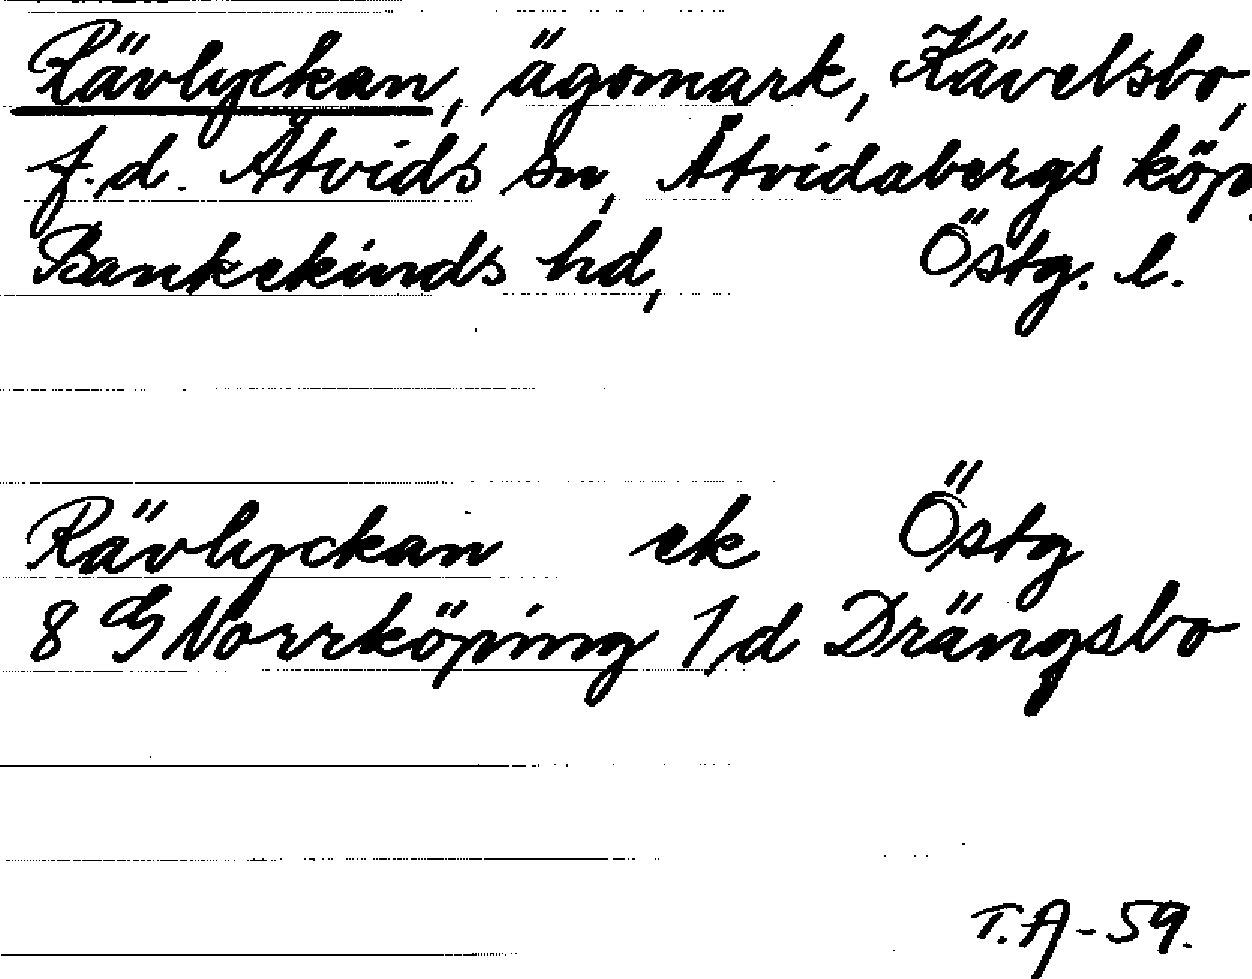 Rävlyckan, ägomark, Kävelsbo,
f.d. Åtvids sn, Åtvidabergs köp,
Bankekinds hd, Östg. l.
Rävlyckan ek Östg
8 G Norrköping 1/d Drängsbo
T.A-59.